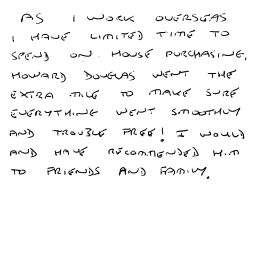 AS I WORK OVERSEAS
I HAVE LIMITED TIME TO
SPEND ON HOUSE PURCHASING,
HOWARD DOUGLAS WENT THE
EXTRA MILE TO MAKE SURE
EVERYTHING WENT SMOOTHLY
AND TROUBLE FREE! I WOULD
AND HAVE RECOMMENDED HIM
TO FRIENDS AND FAMILY.